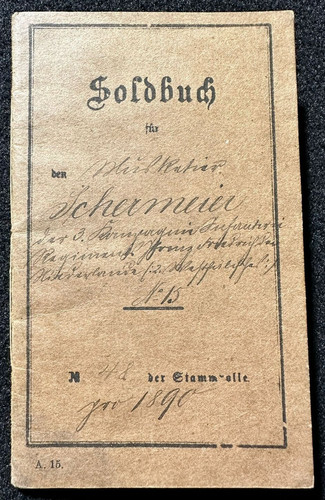 Soldbuch
für
den Musketier
Schermeier
der 3. Kompagnie Infanterie
Regiment Prinz Friedrich der
Niederlande (2. Westfälisches)
No 15
№ 48 der Stammrolle
pro 1890
A. 15.